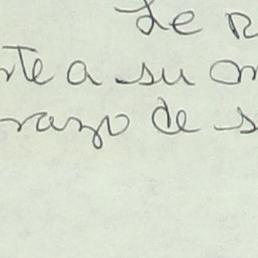 Le R
rte a su om
razo de s